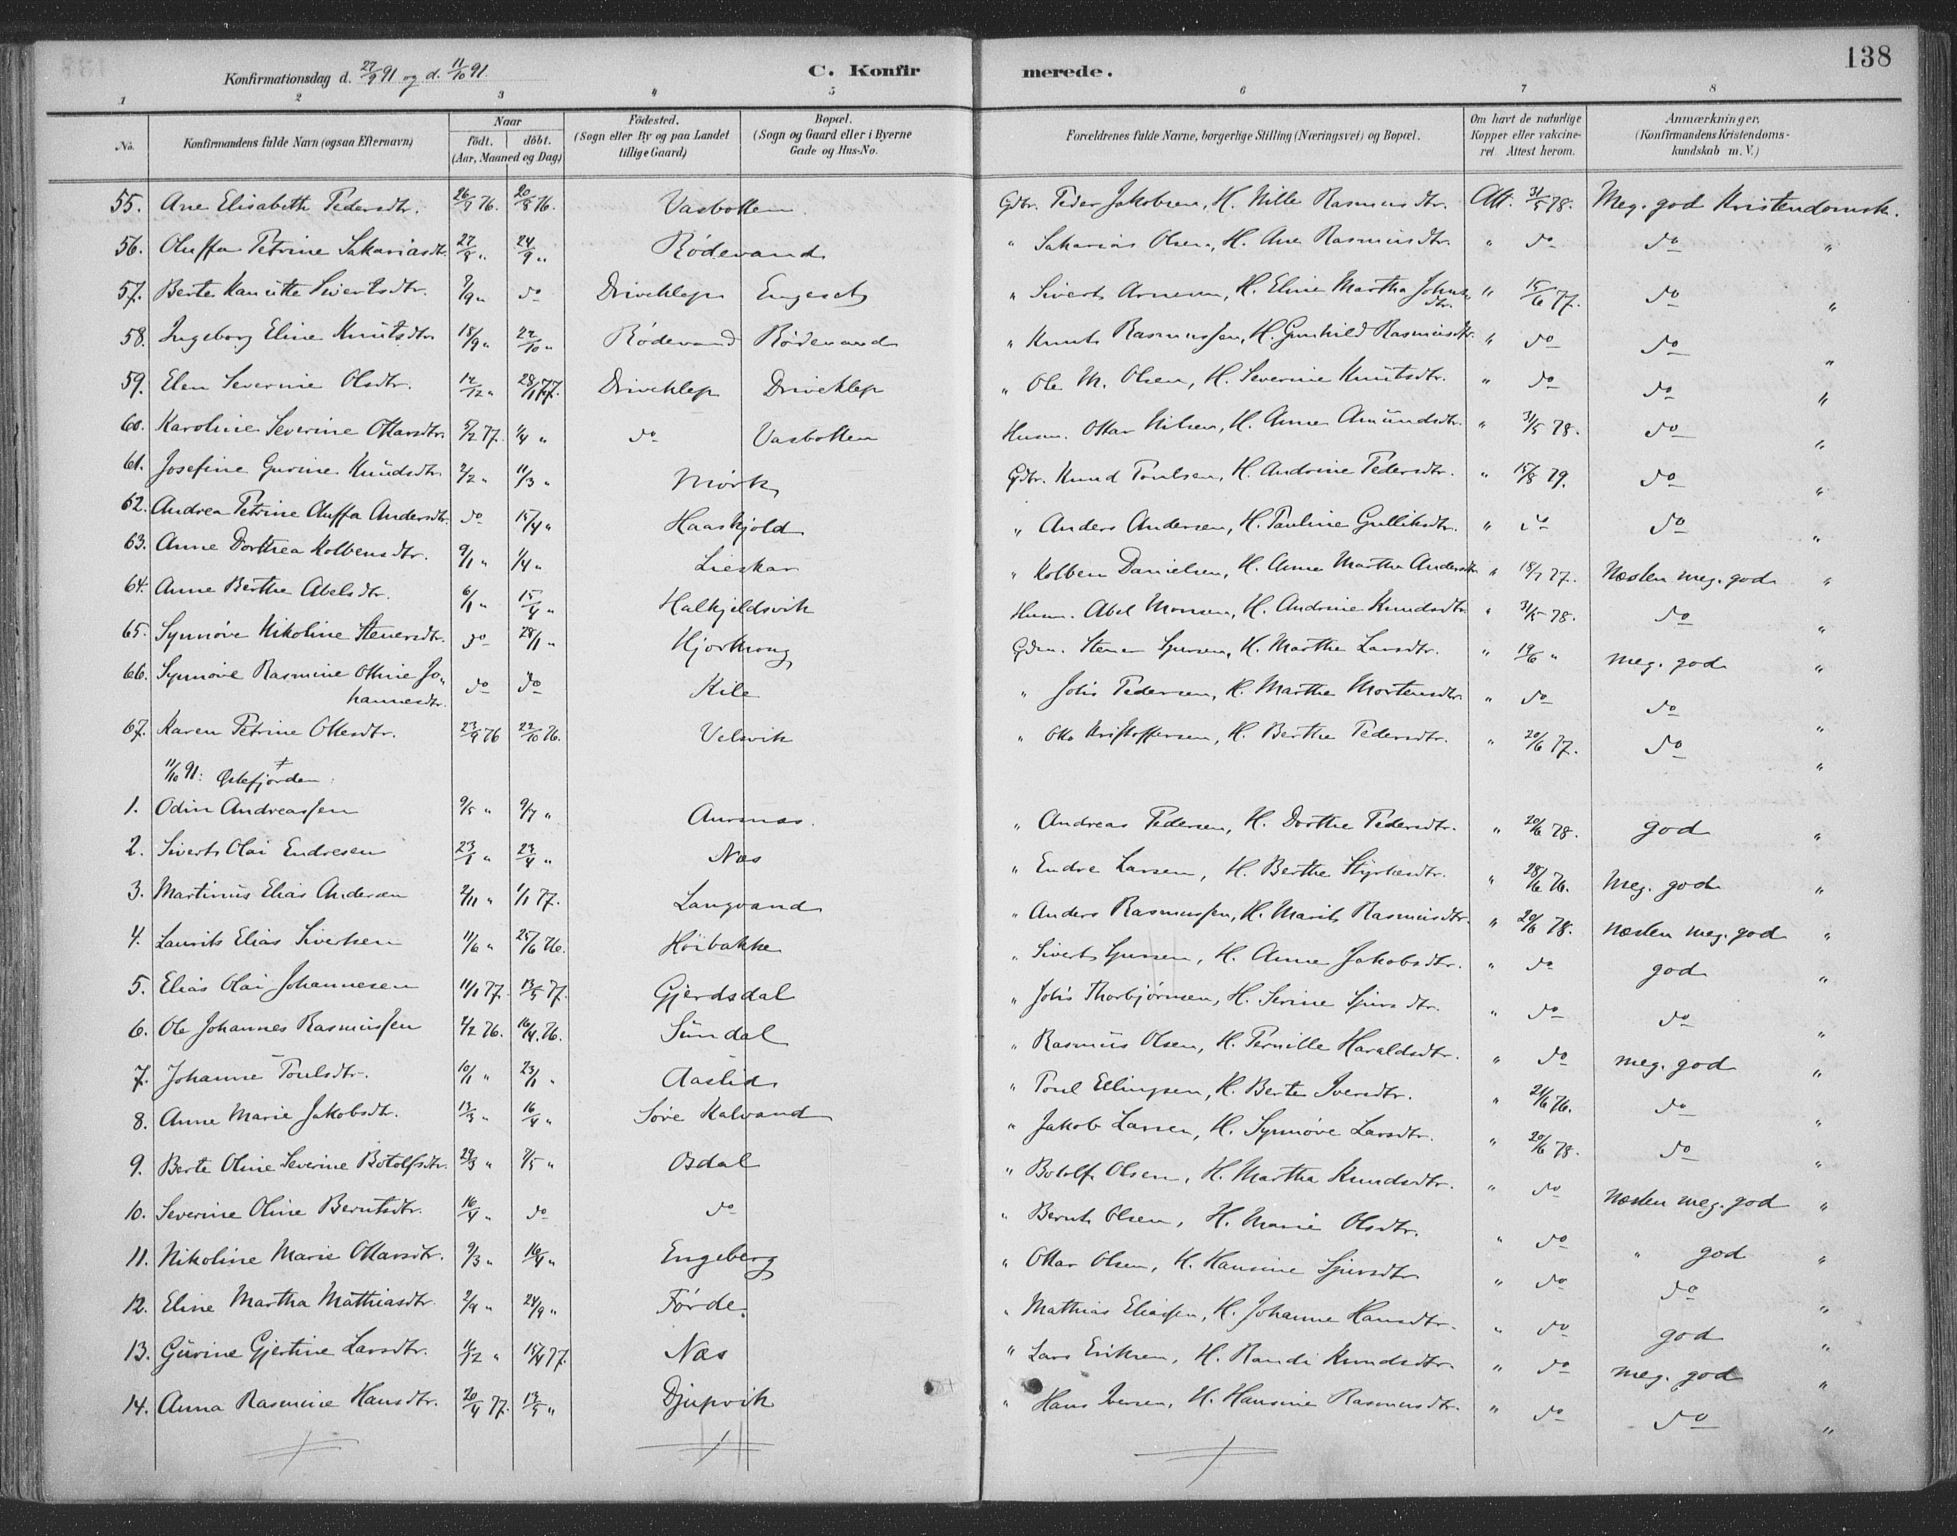 138
Konfirmationsdag d. 27/9 91 og d. 11/10 91.
C. Konfirmerede.
1 2 3 4 5 6 7 8
No. Konfirmandens fulde Navn (ogsaa Efternavn) Naar födt. döbt. (Aar, Maaned og Dag) Födested. (Sogn eller By og paa Landet tillige Gaard) Bopæl. (Sogn og Gaard eller i Byerne Gade og Hus-No. Forældrenes fulde Navne, borgerlige Stilling (Næringsvei) og Bopæl. Om havt de naturlige Kopper eller vakcineret. Attest herom. Anmærkninger. (Konfirmandens Kristendomskundskab m. V.)
55. Ane Elisabeth Pedersdtr. 26/7 76. 20/8 76. Vasbotten. Gdbr. Peder Jakobsen, H. Nille Rasmusdtr. Att. 31/5 78. Meg. god Kristendomsk.
56. Oluffa Petrine Sakariasdtr. 27/8 " 24/9 " Rödevand " Sakarias Olsen, H. Ane Rasmusdtr. " do do "
57. Berte Sivertsdtr. " do Driveklep Engeset " Sivert Arnesen, H. Eline Martha Johnsdtr. " 15/6 77. do "
58. Ingeborg Eline Knutsdtr. 18/9 " 22/10 " Rødevand Rödevand " Knut Rasmussen, H. Gunhild Rasmusdtr. " do do "
59. Elen Severine Olsdtr. 12/12 " 28/1 77. Driveklep Driveklep " Ole M. Olsen, H. Severine Knutsdtr. " do do "
60. Karoline Severine Ottarsdtr. 5/2 77. 1/4 " do Vasbotten Husm. Ottar Nilsen, H. Anne Amundsdtr. " 31/5 78. do "
61. Josefine Gurine Knudsdtr. 2/2 " 11/3 " Mørk Gdbr. Knud Poulsen, H. Andrine Pedersdtr. " 15/8 79. do "
62. Andrea Petrine Oluffa Andersdtr. do 15/4 " Haaskjold " Anders Andersen, H. Pauline Gulliksdtr. " do do "
63. Anne Dorthea Kolbensdtr. 9/1 " 1/4 " Lieskar " Kolben Danielsen, H. Anne Marthe Andersdtr. " 18/7 77. Næsten meg. god "
64. Anne Berthe Abelsdtr. 6/1 " 15/4 " Halkjeldsvik Husm. Abel Monsen, H. Andrine Knudsdtr. " 31/5 78. do "
65. Synnöve Nikoline Steuersdtr. do 28/1 " Hjorthoug Gdm. H. Marthe Larsdtr. " 19/6 " meg. god "
66. Synnöve Rasmine Othine Johannesdtr. do do Kile " Johs Pedersen, H. Marthe Mortensdtr. " do do "
67. Karen Petrine Ottesdtr. 23/9 76 22/10 76. Velsvik " Otto Kristoffersen, H. Berthe Pedersdtr. " 20/6 77. do "
11/10 91: Østefjorden:
1. Odin Andreassen 9/5 " 9/7 " Aursnæs. " Andreas Pedersen, H. Dorthe Pedersdtr. " 20/6 78. god "
2. Sivert Olai Endresen 23/1 " 23/4 " Næs " Endre Larsen, H. Berthe Styrksdtr. " 28/6 76. Meg. god "
3. Martinus Elias Andersen 2/11 " 1/1 77. Langvand " Anders Rasmussen, H. Marit Rasmusdtr. " 20/6 78. næsten meg. god "
4. Laurits Elias Sivertsen 11/6 " 25/6 76. Höibakke " Sivert H. Anne Jakobsdtr. " do god "
5. Elias Olai Johannesen 11/1 77. 13/5 77. Gjerdsdal " Johs Thorbjörnsen, H. Serine Sjursdtr. " do do "
6. Ole Johannes Rasmussen 2/2 76. 16/4 76. Sundal " Rasmus Olsen, H. Pernille Haraldsdtr. " do meg. god "
7. Johanne Poulsdtr. 10/1 " 23/1 " Aaslid " Poul Ellingsen, H. Berte Iversdtr. " 21/6 76. do "
8. Anne Marie Jakobsdtr. 13/3 " 16/4 " Söre Kalvand " Jakob Larsen, H. Synnöve Larsdtr. " 20/6 78. do "
9. Berte Oline Severine Botolfsdtr. 29/3 " 7/5 " Osdal " Botolf Olsen, H. Martha Knudsdtr. " do Næsten meg. god "
10. Severine Oline Berntsdtr. 16/4 " do do " Bernt Olsen, H. Marie Olsdtr. " do " god "
11. Nikoline Marie Ottarsdtr. 9/3 " 16/4 " Engeberg " Ottar Olsen, H. Hansine Sjursdtr " do do "
12. Eline Martha Mathiasdtr. 2/9 " 24/9 " Förde. " Mathias Eliassen, H. Johanne Hansdtr. " do god "
13. Gurine Gjertine Larsdtr. 11/12 " 15/4 77. Næs " Lars Eriksen, H. Randi Knudsdtr. " do meg. god "
14. Anna Rasmine Hansdtr. 20/4 77. 13/5 " Djupvik " Hans Iversen, H. Hansine Rasmusdtr. " do do "